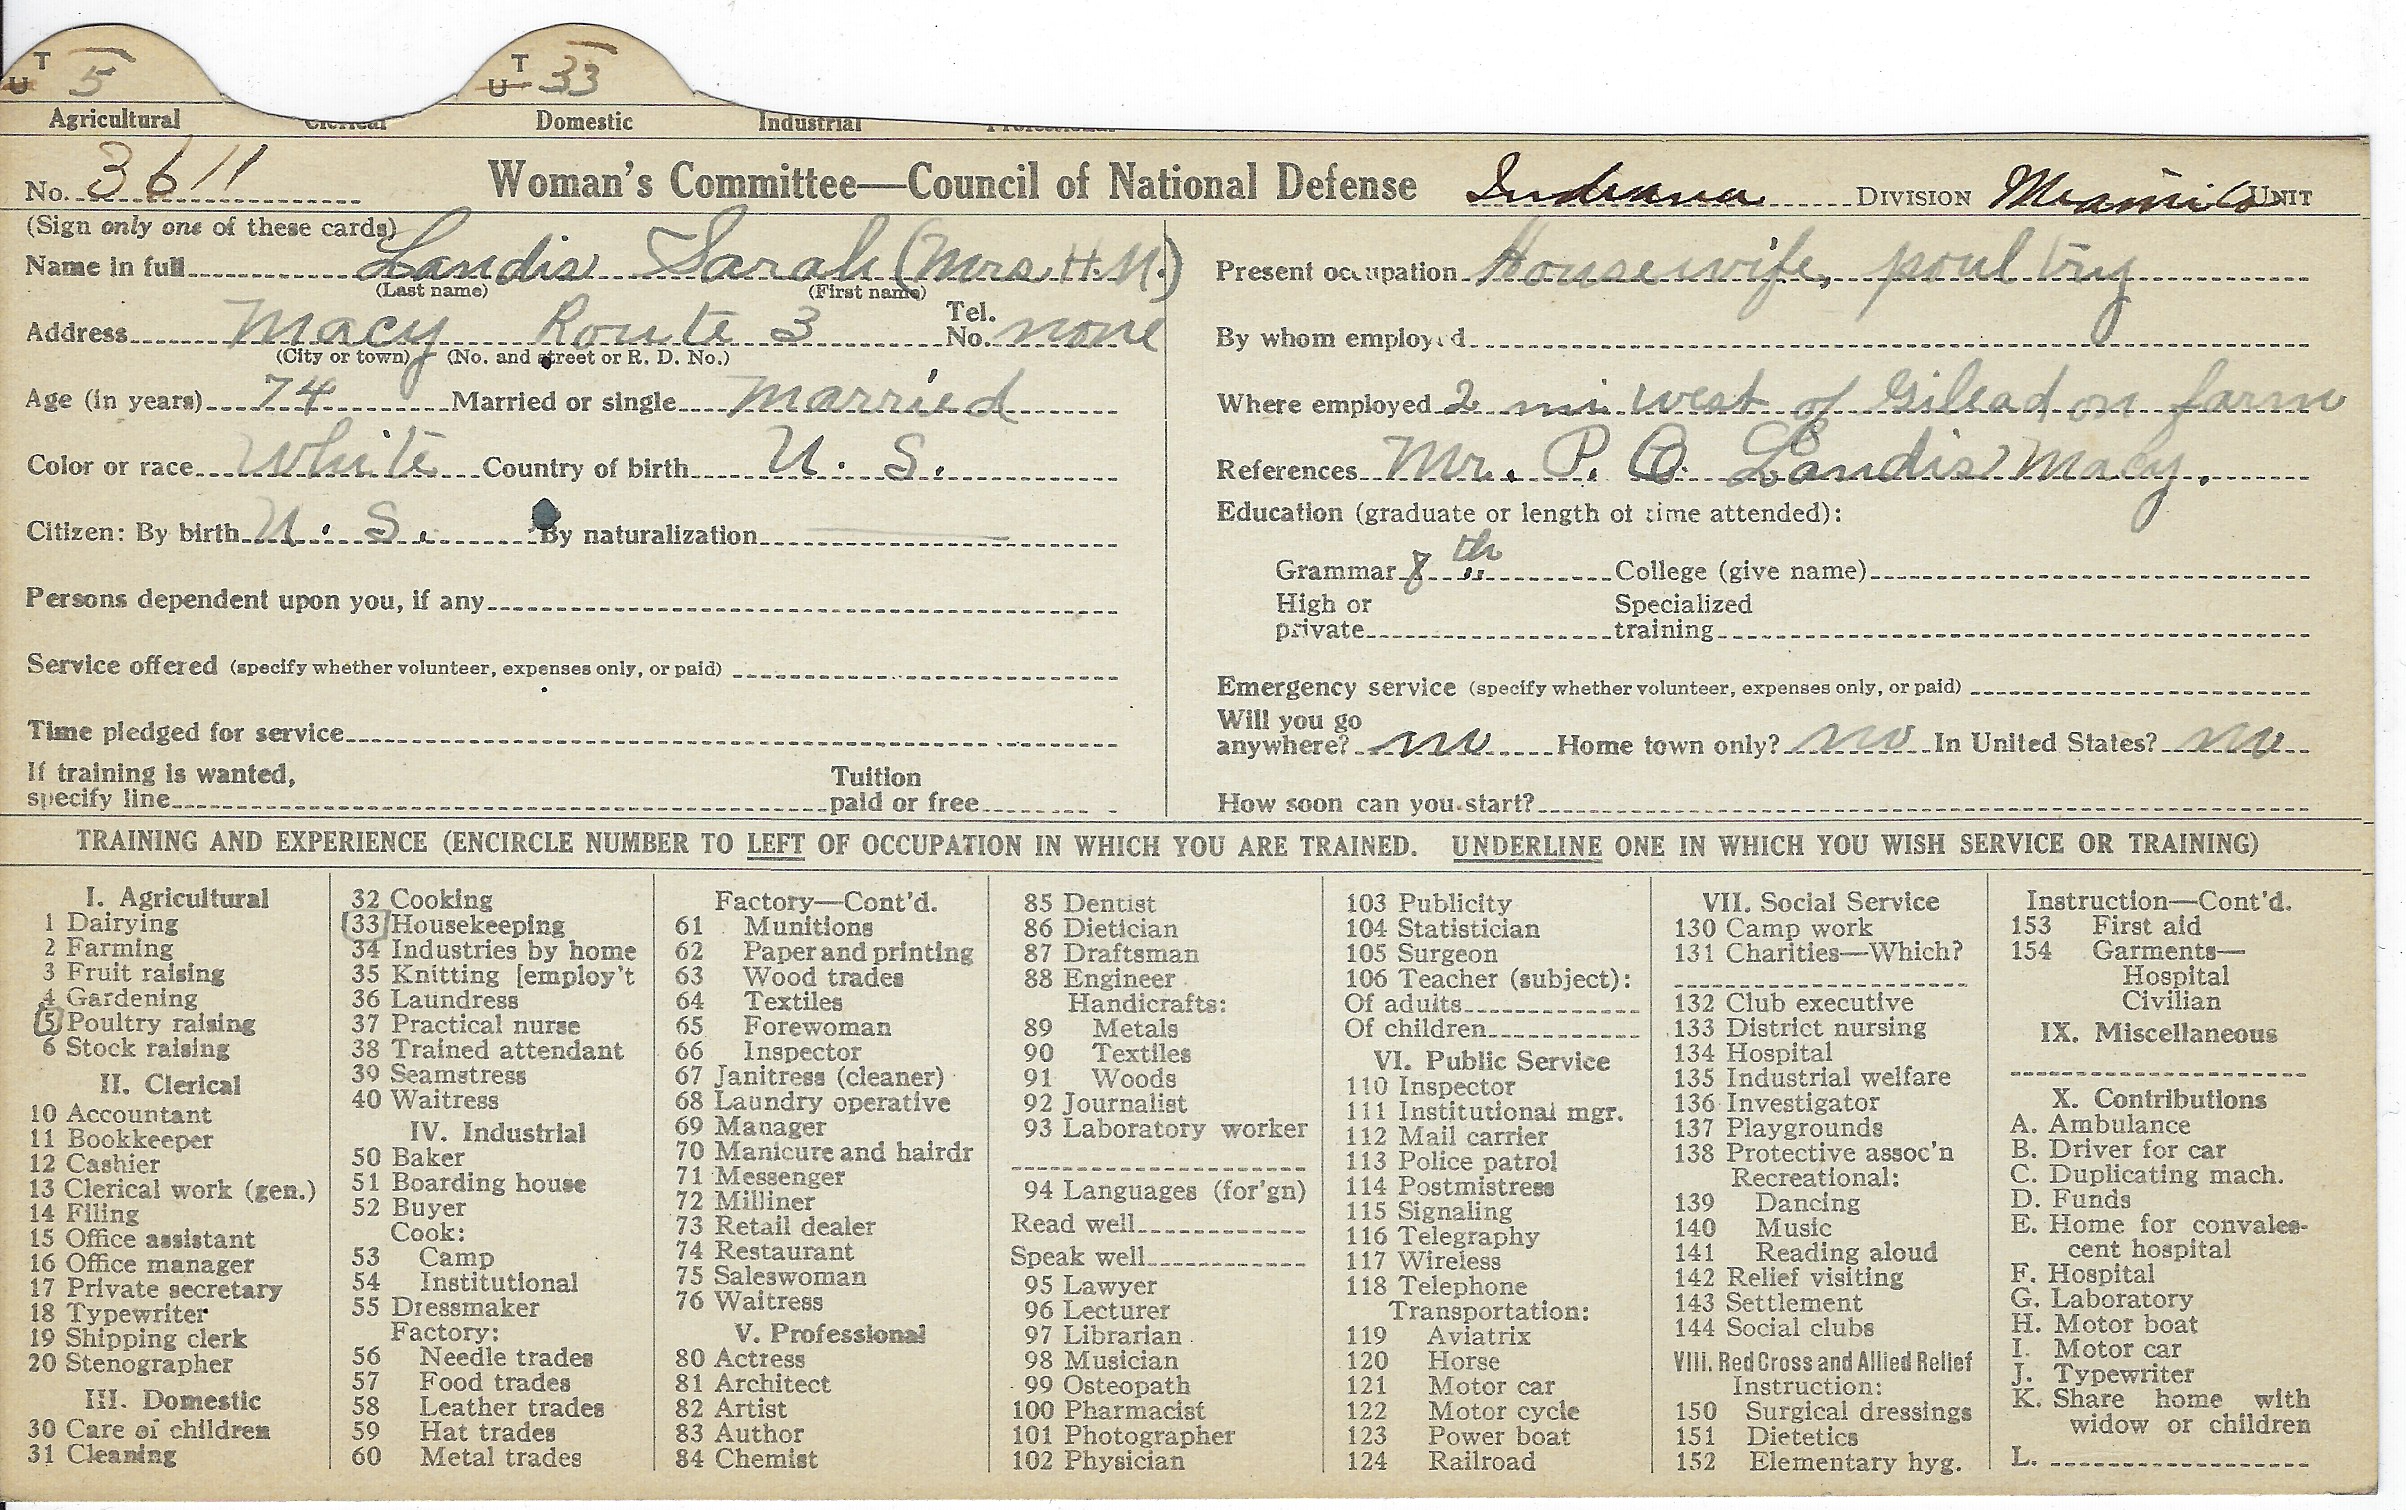 T U 5 T U 33
Agricultural Clerical Domestic Industrial Professional
No. 3611 Woman's Committee—Council of National Defense Indiana DIVISION Miami Co UNIT
(Sign only one of these cards)
Name in full Landis Sarah (Mrs. H. N.)
(Last name) (First name)
Address Macy Route 3 Tel. No. none
(City or town) (No. and street or R. D. No.)
Age (in years) 74 Married or single married
Color or race White Country of birth U. S.
Citizen: By birth U. S. By naturalization
Persons dependent upon you, if any
Service offered (specify whether volunteer, expenses only, or paid)
Time pledged for service
If training is wanted, specify line Tuition paid or free
Present occupation Housewife, poultry
By whom employed
Where employed 2 mi west of Gilead on farm
References Mr. P. O. Landis Macy.
Education (graduate or length of time attended):
Grammar 8th College (give name)
High or private Specialized training
Emergency service (specify whether volunteer, expenses only, or paid)
Will you go anywhere? no Home town only? no In United States? no
How soon can you start?
TRAINING AND EXPERIENCE (ENCIRCLE NUMBER TO LEFT OF OCCUPATION IN WHICH YOU ARE TRAINED. UNDERLINE ONE IN WHICH YOU WISH SERVICE OR TRAINING)
I. Agricultural
1 Dairying
2 Farming
3 Fruit raising
4 Gardening
5 Poultry raising
6 Stock raising
II. Clerical
10 Accountant
11 Bookkeeper
12 Cashier
13 Clerical work (gen.)
14 Filing
15 Office assistant
16 Office manager
17 Private secretary
18 Typewriter
19 Shipping clerk
20 Stenographer
III. Domestic
30 Care of children
31 Cleaning
32 Cooking
33 Housekeeping
34 Industries by home
35 Knitting [employ't
36 Laundress
37 Practical nurse
38 Trained attendant
39 Seamstress
40 Waitress
IV. Industrial
50 Baker
51 Boarding house
52 Buyer
Cook:
53 Camp
54 Institutional
55 Dressmaker
Factory:
56 Needle trades
57 Food trades
58 Leather trades
59 Hat trades
60 Metal trades
Factory—Cont'd.
61 Munitions
62 Paper and printing
63 Wood trades
64 Textiles
65 Forewoman
66 Inspector
67 Janitress (cleaner)
68 Laundry operative
69 Manager
70 Manicure and hairdr
71 Messenger
72 Milliner
73 Retail dealer
74 Restaurant
75 Saleswoman
76 Waitress
V. Professional
80 Actress
81 Architect
82 Artist
83 Author
84 Chemist
85 Dentist
86 Dietician
87 Draftsman
88 Engineer
Handicrafts:
89 Metals
90 Textiles
91 Woods
92 Journalist
93 Laboratory worker
94 Languages (for'gn)
Read well
Speak well
95 Lawyer
96 Lecturer
97 Librarian
98 Musician
99 Osteopath
100 Pharmacist
101 Photographer
102 Physician
103 Publicity
104 Statistician
105 Surgeon
106 Teacher (subject):
Of adults
Of children
VI. Public Service
110 Inspector
111 Institutional mgr.
112 Mail carrier
113 Police patrol
114 Postmistress
115 Signaling
116 Telegraphy
117 Wireless
118 Telephone
Transportation:
119 Aviatrix
120 Horse
121 Motor car
122 Motor cycle
123 Power boat
124 Railroad
VII. Social Service
130 Camp work
131 Charities—Which?
132 Club executive
133 District nursing
134 Hospital
135 Industrial welfare
136 Investigator
137 Playgrounds
138 Protective assoc'n
Recreational:
139 Dancing
140 Music
141 Reading aloud
142 Relief visiting
143 Settlement
144 Social clubs
VIII. Red Cross and Allied Relief
Instruction:
150 Surgical dressings
151 Dietetics
152 Elementary hyg.
Instruction—Cont'd.
153 First aid
154 Garments—
Hospital
Civilian
IX. Miscellaneous
X. Contributions
A. Ambulance
B. Driver for car
C. Duplicating mach.
D. Funds
E. Home for convales-
cent hospital
F. Hospital
G. Laboratory
H. Motor boat
I. Motor car
J. Typewriter
K. Share home with
widow or children
L.